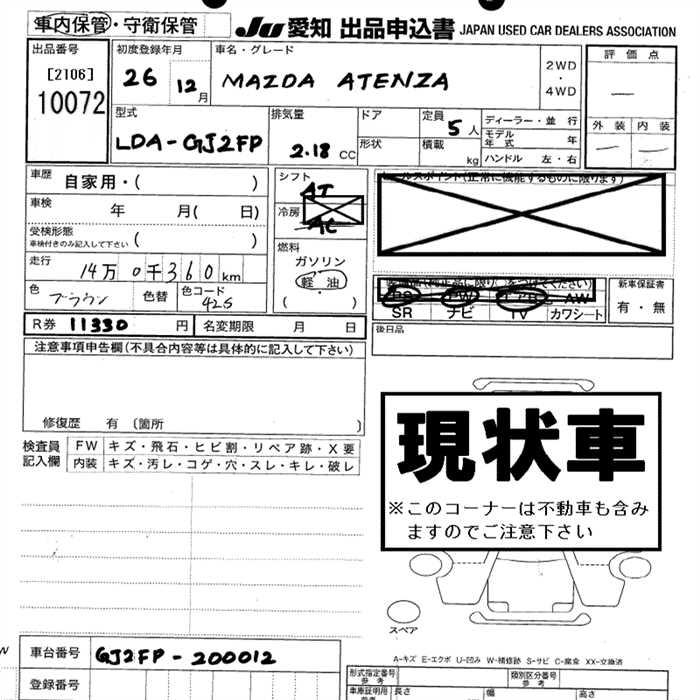 車内保管・守衛保管 JU 愛知 出品申込書 JAPAN USED CAR DEALERS ASSOCIATION
出品番号 初度登録年月 車名・グレード 評価点
[2106] 26 12月 MAZDA ATENZA 2WD・4WD —
10072
型式 排気量 ドア 定員 5人 ディーラー・並行 外装 内装
LDA-GJ2FP 2.18 CC 形状 積載 kg モデル年式 年 — —
ハンドル 左・右
車歴 自家用・( ) シフト AT
車検 年 月( 日) 冷房 AC
受検形態 車検付きのみ記入して下さい ( ) 燃料
走行 14万0千360km ガソリン
色 ブラウン 色替 色コード 42S 軽油
( )
新車保証書
有・無
SR ナビ TV カワシート
R券 11330円 名変期限 月 日 後日品
注意事項申告欄(不具合内容等は具体的に記入して下さい)
修復歴 有 (箇所 )
現状車
※このコーナーは不動車も含み
ますのでご注意下さい
検査員記入欄 FW キズ・飛石・ヒビ割・リペア跡・X要
内装 キズ・汚レ・コゲ・穴・スレ・キレ・破レ
スペア
A-キズ E-エクボ U-凹み W-補修跡 S-サビ C-腐食 XX-交換済
車台番号 GJ2FP-200012
登録番号
形式指定番号 参考 類別区分番号 参考
車庫証明用 参考 長さ 幅 高さ